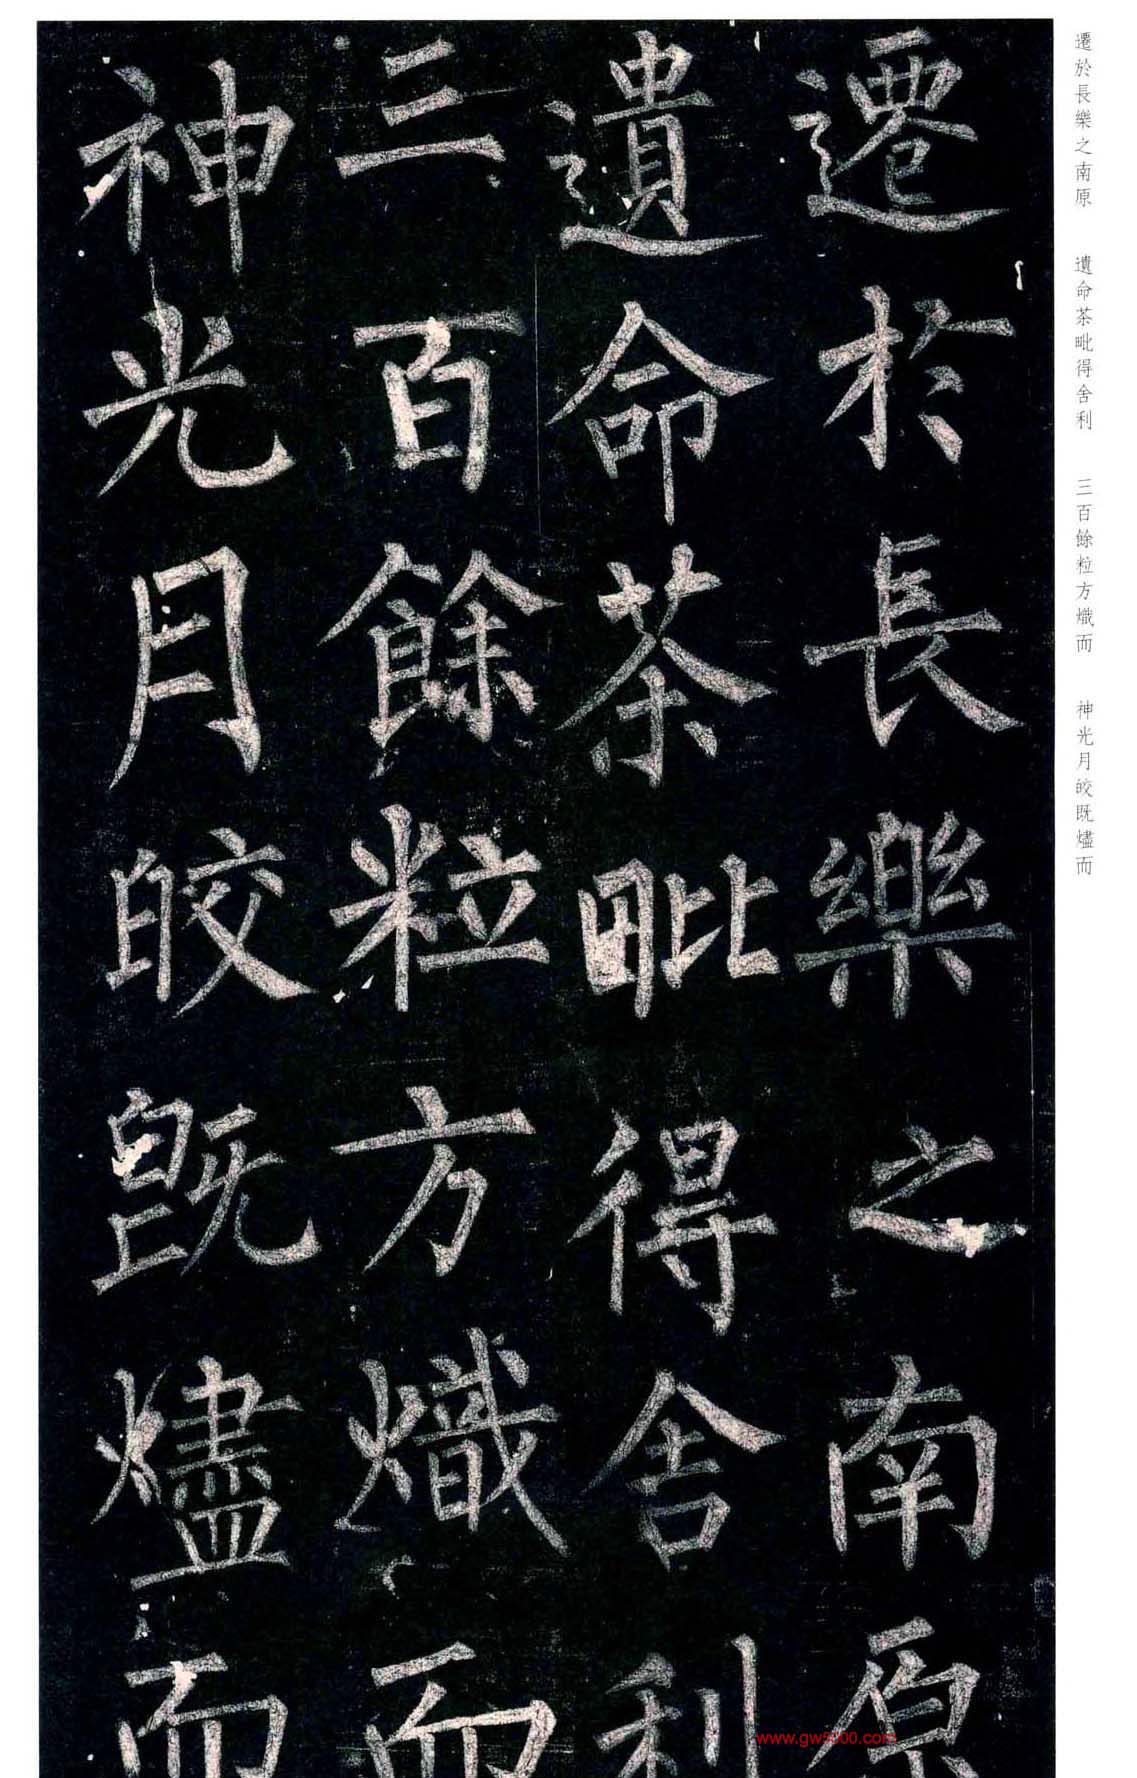 遷於長樂之南原
遺命茶毗得舍利
三百餘粒方熾而
神光月皎既燼而
遷於長樂之南原 遺命茶毗得舍利 三百餘粒方熾而 神光月皎既燼而
www.gw5000.com